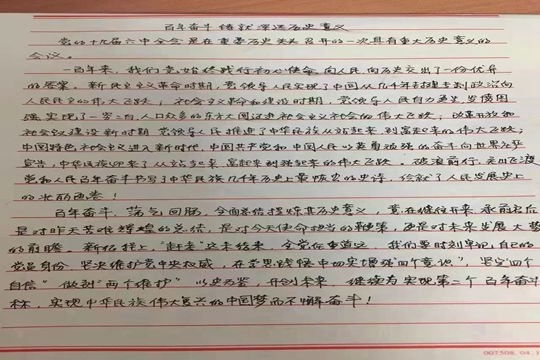 百年奋斗铸就深远历史意义
党的十九届六中全会是在重要历史关头召开的一次具有重大历史意义的
会议。
一百年来,我们党始终践行初心使命,向人民向历史交出了一份优异
的答案。新民主主义革命时期,党领导人民实现了中国从几千年封建专制政治向
人民民主的伟大飞跃;社会主义革命和建设时期,党领导人民自力更生、发愤图
强,实现了一穷二白、人口众多的东方大国迈进社会主义社会的伟大飞跃;改革开放和
社会主义建设新时期,党领导人民推进了中华民族从站起来到富起来的伟大飞跃;
中国特色社会主义进入新时代,中国共产党和中国人民以英勇顽强的奋斗向世界庄严
宣告,中华民族迎来了从站起来、富起来到强起来的伟大飞跃。破浪前行,
党和人民百年奋斗书写了中华民族几千年历史上最恢宏的史诗,绘就了人民发展史上
的壮丽画卷!
百年奋斗,荡气回肠,全面总结提炼其历史意义,意在继往开来,承前启后
是对昨天苦难辉煌的总结,是对今天使命担当的鞭策,还是对未来发展大势
的前瞻。新征程上,"赶考"远未结束,全党任重道远。我们要时刻牢记自己的
党员身份,坚决维护党中央权威,在党性锻炼中切实增强"四个意识",坚定"四个
自信"做到"两个维护"以史为鉴,开创未来,继续为实现第二个百年奋斗
目标,实现中华民族伟大复兴的中国梦而不懈奋斗!